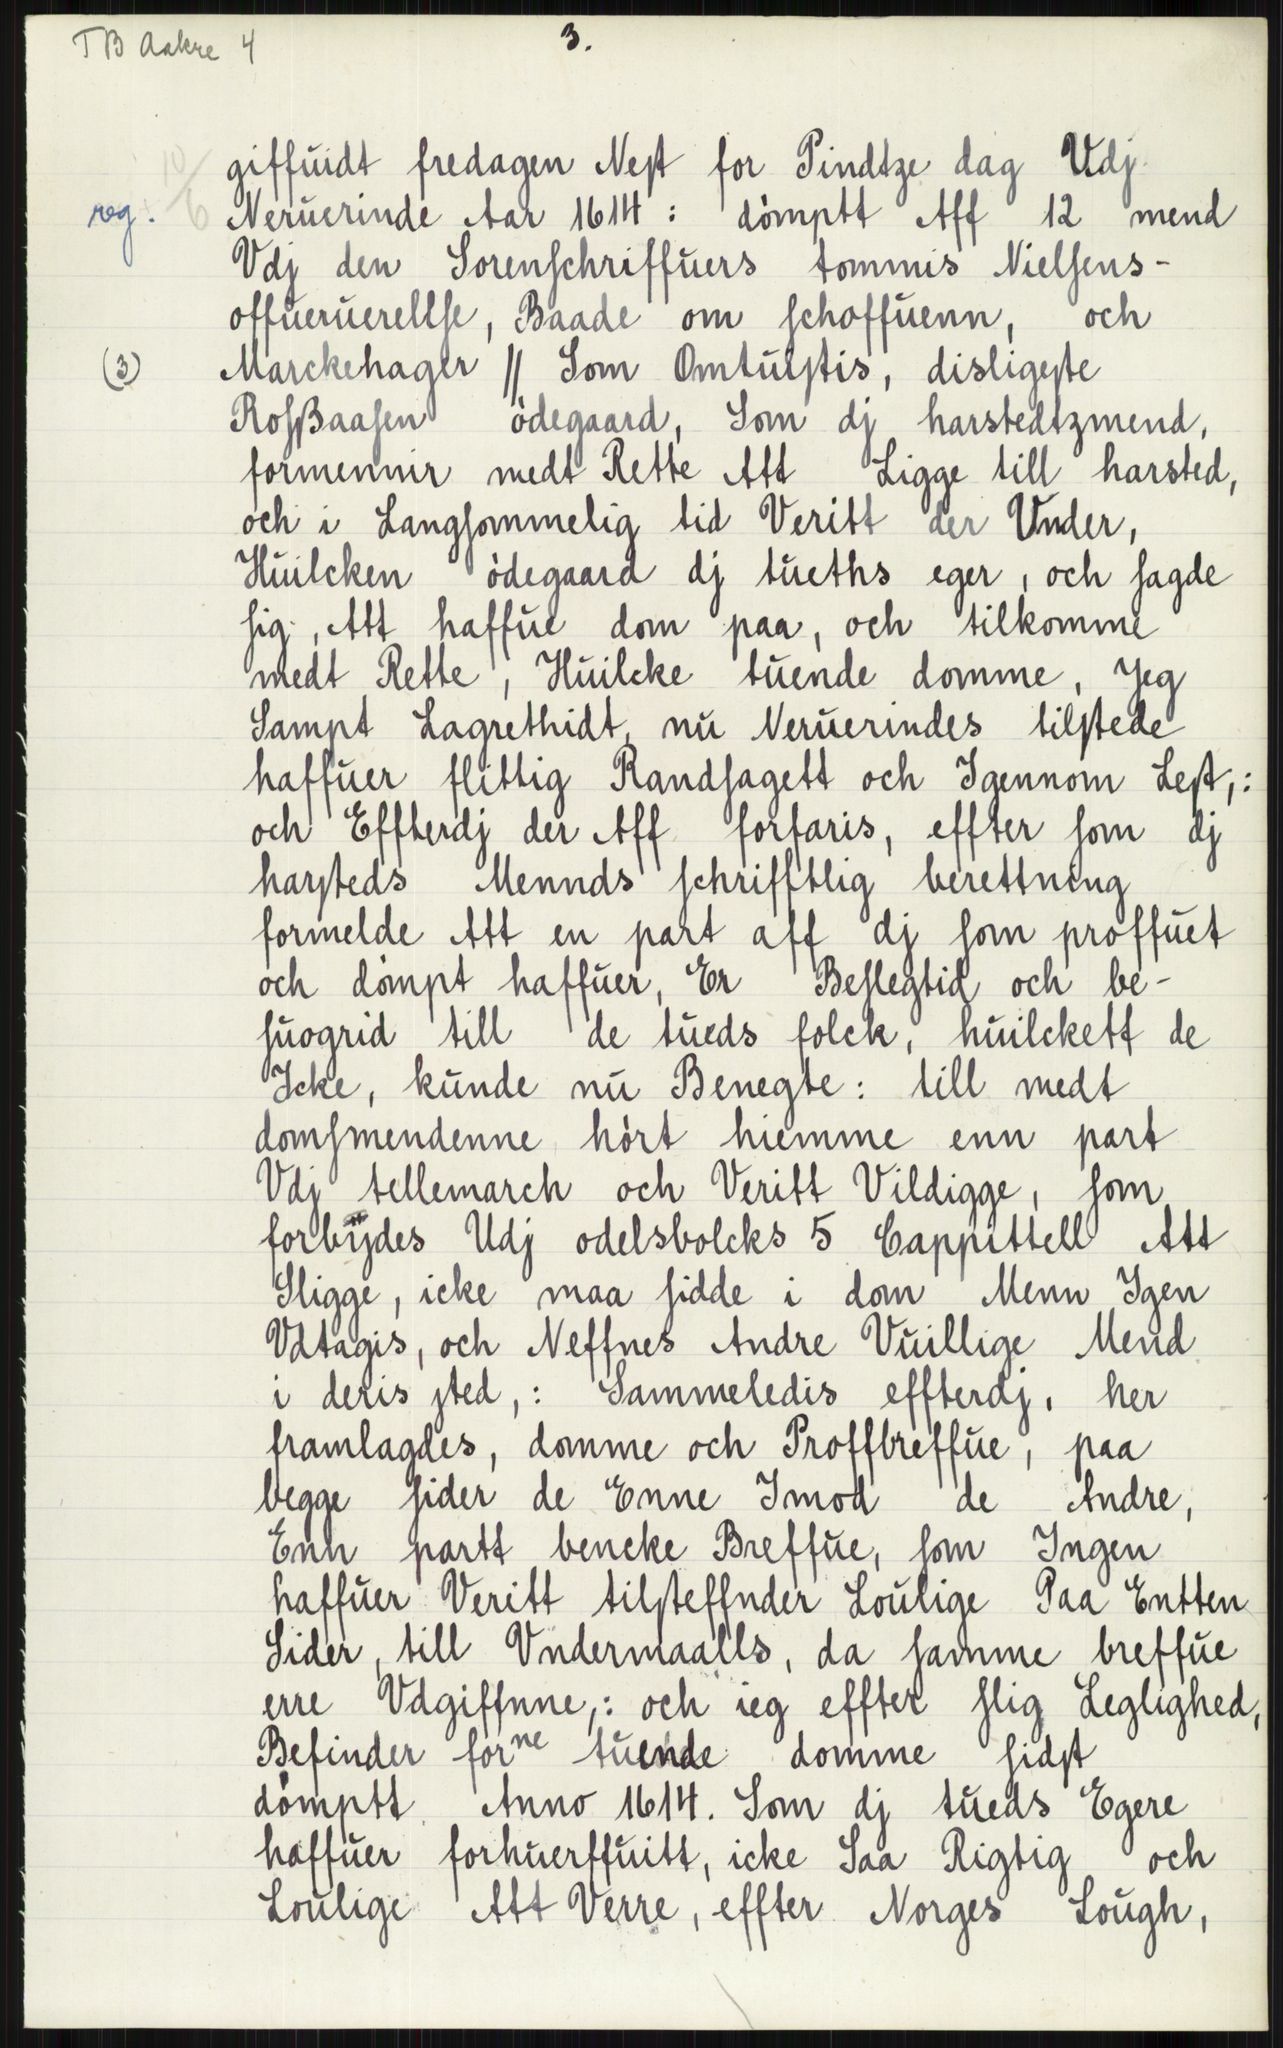 TB Aakre 4
3.
10/6
reg.
(3)
giffuidt fredagen Nest for Pindtze dag Udj
Neruerinde Aar 1614 : dömptt Aff 12 mend
Vdj den Sorenschriffuers tommis Nielsens-
offueruerellse, Baade om schoffuenn, och
Marckehager // Som Omtuistis, disligeste
Rosßaasen ödegaard, Som dj harstedtzmend,
formennir medt Rette Att Ligge till harsted,
och i Langsommelig tid Veritt der Under,
Huilcken ödegaard dj tueths eger, och sagde
sig, Att haffue dom paa, och tilkomme
medt Rette, Huilcke tuende domme, Jeg
Sampt Lagrethidt, nu Neruerindes tilstede
haffuer flittig Randsagett och Igennom Lest,:
och Effterdj der Aff forfaris, effter som dj
harsteds Mennds schrifftlig berettning
formelde Att en part aff dj som proffuet
och dömpt haffuer, Er Beslegtid och be-
suogrid till de tueds folck, huilckett de
Icke, kunde nu Benegte : till medt
domsmendenne hört hiemme enn part
Vdj tellemarch och Veritt Vildigge, som
forbÿdes Udj odelsbolcks 5 Cappittell Att
Sligge, icke maa sidde i dom Menn Igen
Vdtagis, och Neffnes Andre Vuillige Mend
i deris sted,: Sammeledis effterdj, her
framlagdes, domme och Proffbreffue, paa
begge sider de Enne Imod de Andre,
Enn partt bencke Breffue, som Ingen
haffuer Veritt tilsteffnder Loulige Paa Entten
Sider, till Vndermaalls, da samme breffue
erre Vdgiffnne,: och ieg effter slig Leglighed,
Befinder forne tuende domme sidst
dömptt Anno 1614. Som dj tueds Egere
haffuer forhuerffuitt, icke Saa Rigtig och
Loulige Att Verre, effter Norges Lough,